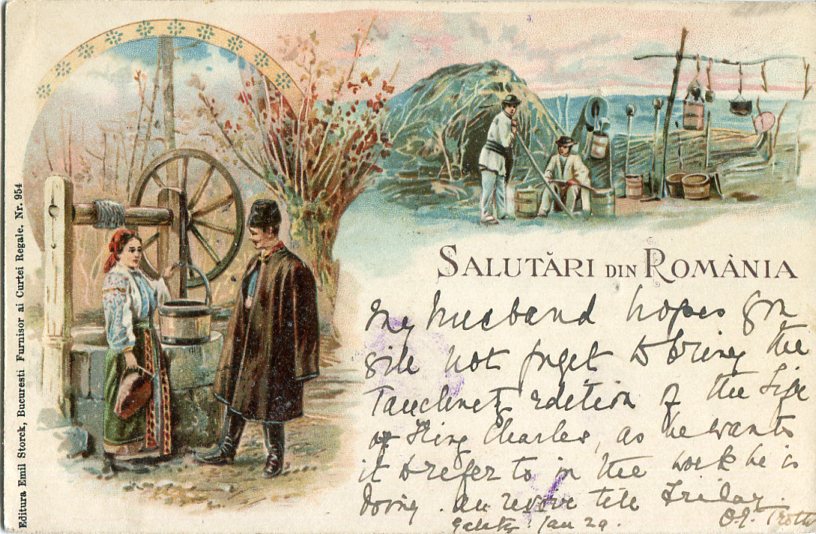 Editura Emil Storck, Bucuresti Furnisor ai Curtei Regale. Nr. 954
SALUTĂRI DIN ROMÂNIA
My husband hopes you
will not forget to bring the
Tauchnitz edition of the Life
of King Charles, as he wants
it to refer to in the work he is
doing. Au revoir till Friday.
Galatz. Jan 29.